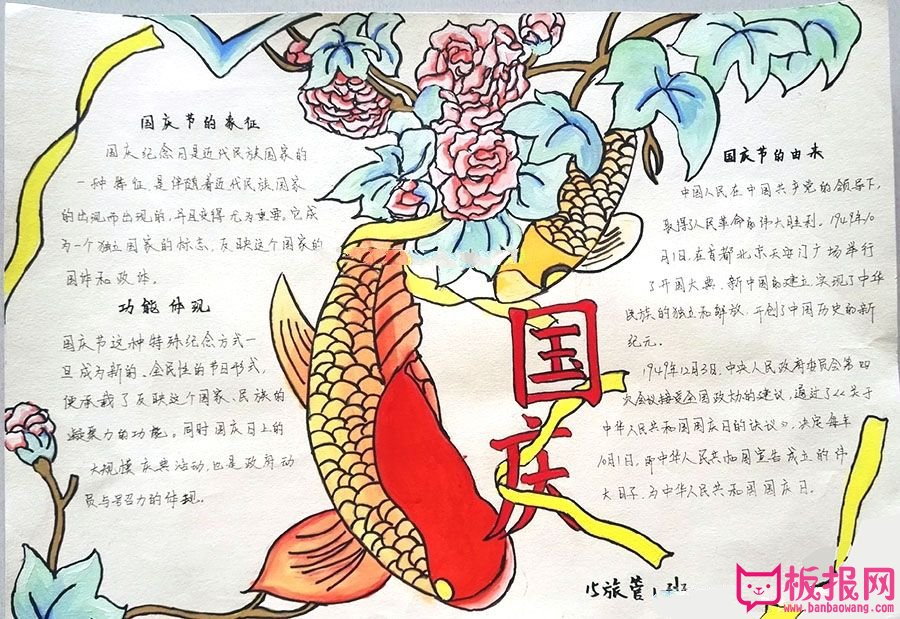 国庆节的象征
国庆纪念日是近代民族国家的
一种特征,是伴随着近代民族国家
的出现而出现的,并且变得尤为重要。它成
为一个独立国家的标志,反映这个国家的
国体和政体。
功能体现
国庆节这种特殊纪念方式一
旦成为新的、全民性的节日形式,
便承载了反映这个国家、民族的
凝聚力的功能。同时国庆日上的
大规模庆典活动,也是政府动
员与号召力的体现。
国庆
国庆节的由来
中国人民在中国共产党的领导下,
取得人民革命的伟大胜利。1949年10
月1日,在首都北京天安门广场举行
了开国大典。新中国的建立实现了中华
民族的独立和解放,开创了中国历史的新
纪元。
1949年12月3日,中央人民政府委员会第四
次会议接受全国政协的建议,通过了《关于
中华人民共和国国庆日的决议》,决定每年
10月1日,即中华人民共和国宣告成立的伟
大日子,为中华人民共和国国庆日。
15旅管1班
板报网
www.banbaowang.com